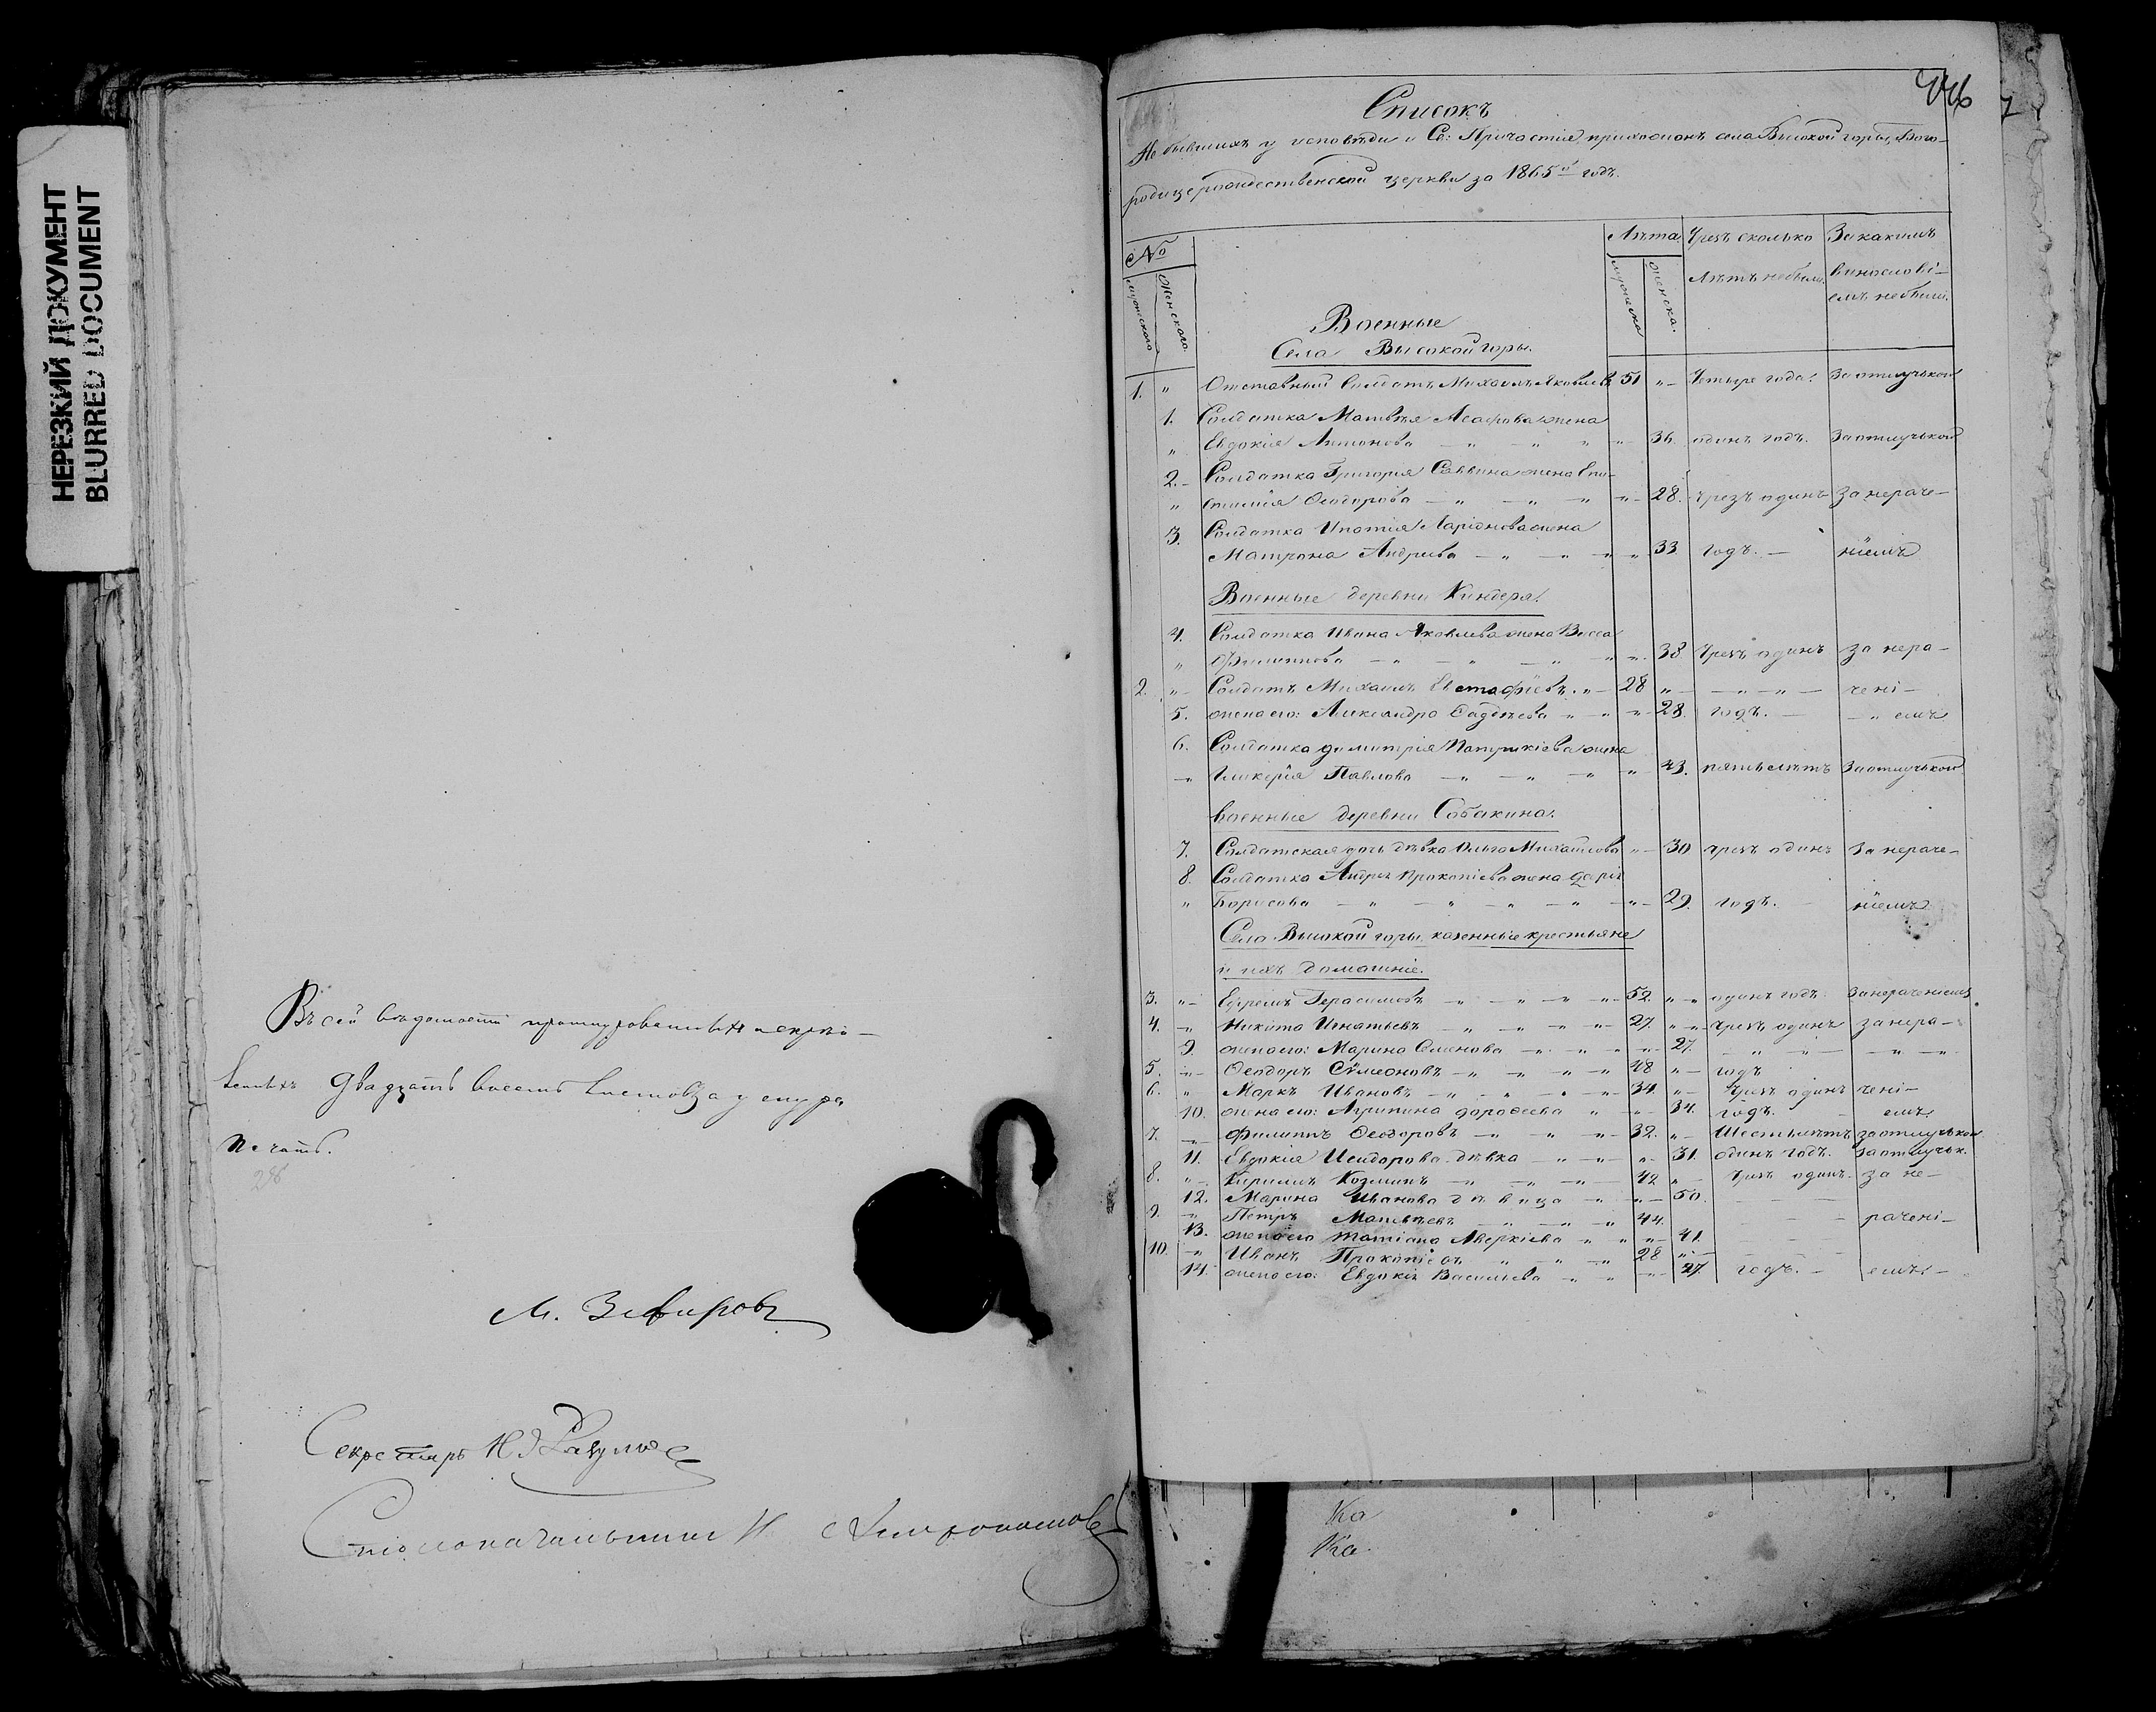 НЕРЕЗКИЙ ДОКУМЕНТ
BLURRED DOCUMENT
Въ сей вѣдомости пронумерованныхъ и скрѣп-
ленныхъ двадцать восемь листовъ за у сиура
печать.
28
М. Зефировъ
Секретарь Н
Столоначальникъ И
446
Списокъ
Не бывшихъ у исповѣди и Св: Причастія, прихожанъ села Высокой горы, Бого-
родицерождественской церкви за 1865й годъ.
№ Лѣта Чрезъ сколько За какимъ
мужескаго Женскаго мужеска женска. лѣтъ не были. винослові-
емъ не были.
Военные
Села Высокой горы.
1. " Отставный Солдатъ Михаилъ Яковлевъ 51 " Четыре года. За отлучкою
1. Солдатка Матвѣя Асафова жена
" Евдокія Антонова " " " " 36. одинъ годъ. За отлучкой
2. Солдатка Григорія Саввина жена Епи-
" стимія Ѳеодорова " " " " 28. чрезъ одинъ За нераче-
3. Солдатка Ипатія Ларіонова жена
Матрона Андреева " " " " 33 годъ. ніемъ
Военные деревни Киндеря.
4. Солдатка Ивана Яковлева жена Васса
" Филиппова " " " " " 38 Чрезъ одинъ за нера-
2. " Солдатъ Михаилъ Евстафіевъ. " 28 " " " чені-
5. жена его: Александра Фаддѣева " " " 28. годъ. " емъ
6. Солдатка Димитрія Патрикіева жена
" Гликерія Павлова " " " " 43. пять лѣтъ За отлучкой
Военные деревни Собакина.
7. Солдатская дочь дѣвка Ольга Михайлова " 30 чрезъ одинъ За нераче-
8. Солдатка Андрея Прокопіева жена Дарья
" Борисова " " " " " 29. годъ. ніемъ
Села Высокой горы казенные крестьяне
и ихъ домашніе.
3. " Ефремъ Герасимовъ " " " " 52. " " одинъ годъ. За нераченіемъ
4. " Никита Игнатьевъ " " " " 27. " " Чрезъ одинъ за нера-
9. жена его: Марина Семенова " " " " 27. " " " "
5. " Ѳеодоръ Сѵмеоновъ " " " " 48 " годъ
6. " Маркъ Ивановъ " " " " 34. " Чрезъ одинъ чені-
10. жена его: Агрипина Дороѳеева " " 34. годъ. емъ.
7. " Филиппъ Ѳеодоровъ " " " 32. " Шесть лѣтъ за отлучкой
11. Евдокія Исидорова дѣвка " " " 31. одинъ годъ. за отлучк.
8. " Кирилъ Козминъ " " " 42 " Чрезъ одинъ за не-
12. Марина Иванова дѣвица " " 50.
9. " Петръ Матвѣевъ " " " 44. рачені-
13. жена его Татіана Аверкіева " " " 41.
10. " Иванъ Прокопіевъ " " " 28 "
14. жена его: Евдокія Васильева " " " 27. годъ. емъ.
Ка
Ка